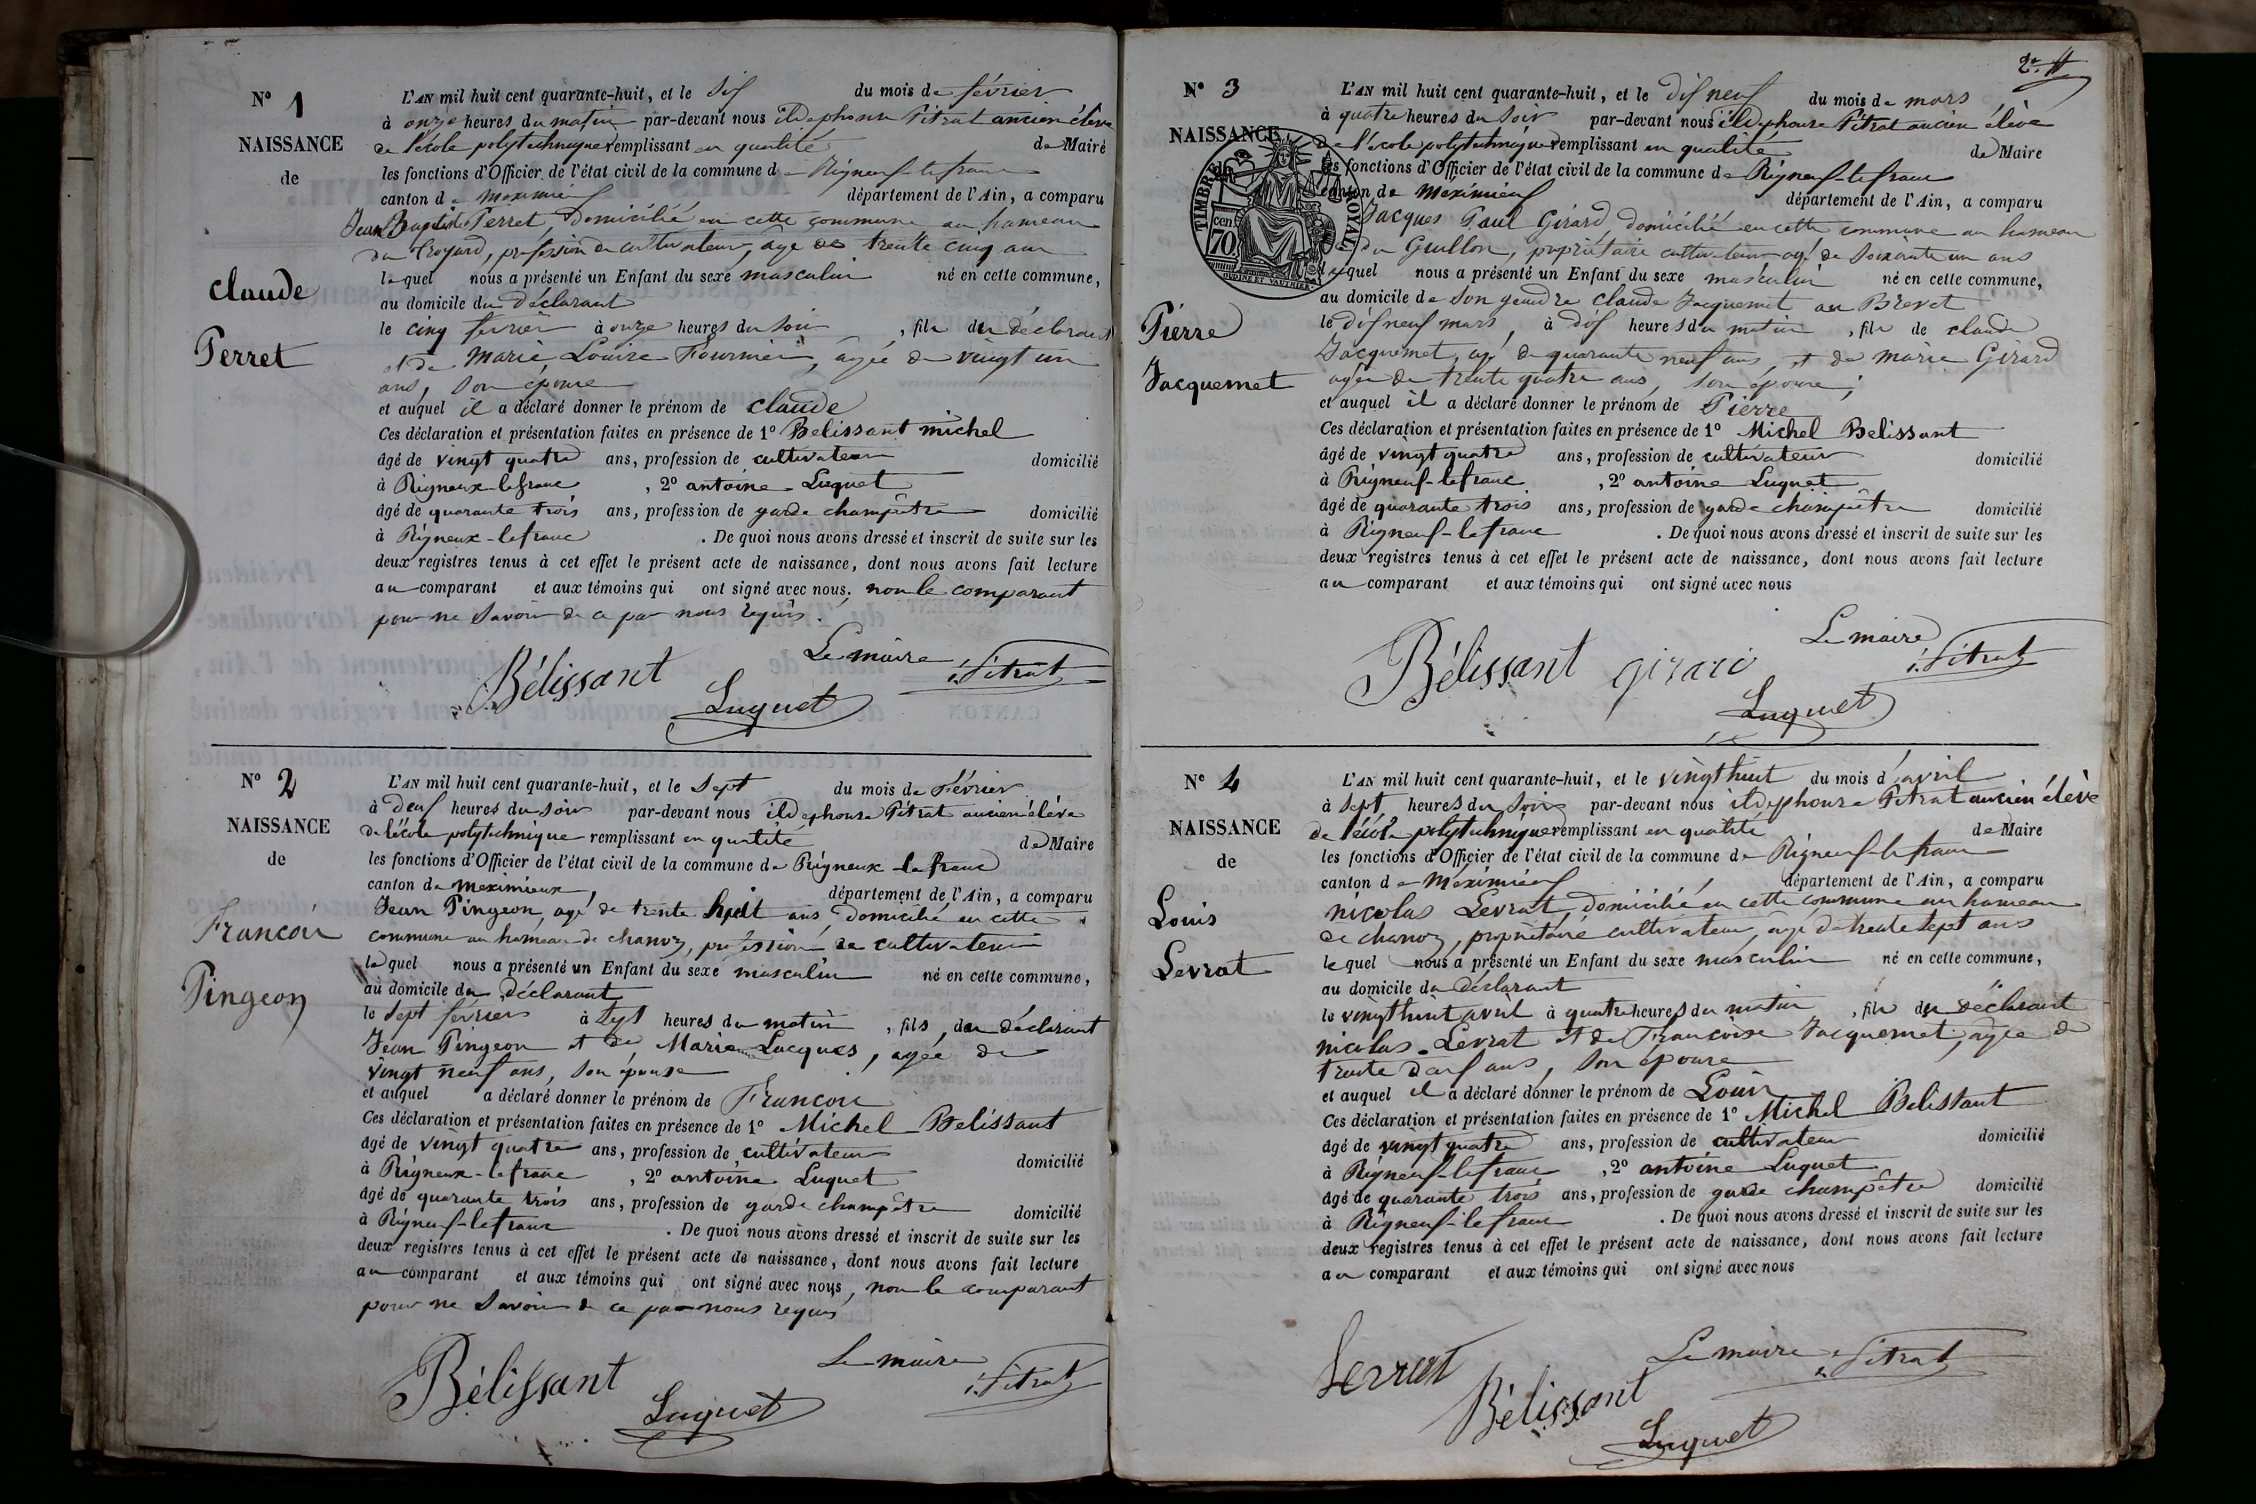 N° 1
NAISSANCE
de
claude
Perret
L'AN mil huit cent quarante-huit, et le six du mois de février
à onze heures du matin par-devant nous ildephonse Pitrat ancien élève
de l'école polytechnique remplissant en qualité de Maire
les fonctions d'Officier de l'état civil de la commune de Rigneux-le franc
canton de meximieux département de l'Ain, a comparu
Jean Baptiste Perret, domicilié en cette commune au hameau
du profession de cultivateur, âgé de trente cinq ans
lequel nous a présenté un Enfant du sexe masculin né en cette commune,
au domicile du déclarant
le cinq février à onze heures du soir, fils du déclarant
et de Marie Louise Fournier, âgée de vingt un
ans, son épouse
et auquel il a déclaré donner le prénom de claude
Ces déclaration et présentation faites en présence de 1° Belissant michel
âgé de vingt quatre ans, profession de cultivateur domicilié
à Rigneux-lefranc, 2° antoine Luquet
âgé de quarante trois ans, profession de garde champêtre domicilié
à Rigneux-lefranc. De quoi nous avons dressé et inscrit de suite sur les
deux registres tenus à cet effet le présent acte de naissance, dont nous avons fait lecture
au comparant et aux témoins qui ont signé avec nous, non le comparant
pour ne savoir de ce par nous requis.
Le maire
Bélissant Luquet i. Pitrat
N° 2
NAISSANCE
de
Francois
Pingeon
L'AN mil huit cent quarante-huit, et le sept du mois de février
à deux heures du soir par-devant nous ildephonse Pitrat ancien élève
de l'école polytechnique remplissant en qualité de Maire
les fonctions d'Officier de l'état civil de la commune de Rigneux-le franc
canton de meximieux, département de l'Ain, a comparu
Jean Pingeon, agé de trente huit ans, domicilié en cette
commune au hameau de chanoz, profession de cultivateur
lequel nous a présenté un Enfant du sexe masculin né en cette commune,
au domicile du déclarant
le sept février à sept heures du matin, fils, du déclarant
Jean Pingeon et de Marie Lacques, agée de
vingt neuf ans, son épouse
et auquel a déclaré donner le prénom de Francois
Ces déclaration et présentation faites en présence de 1° Michel Belissant
âgé de vingt quatre ans, profession de cultivateur domicilié
à Rigneux-lefranc, 2° antoine Luquet
âgé de quarante trois ans, profession de garde champêtre domicilié
à Rigneux-lefranc. De quoi nous avons dressé et inscrit de suite sur les
deux registres tenus à cet effet le présent acte de naissance, dont nous avons fait lecture
au comparant et aux témoins qui ont signé avec nous, non le comparant
pour ne savoir de ce par nous requis
Le maire
Bélissant Luquet i. Pitrat
2.e
N° 3
NAISSANCE
TIMBRE ROYAL
cen 70
Pierre
Jacquemet
L'AN mil huit cent quarante-huit, et le dix neuf du mois de mars
à quatre heures du soir par-devant nous ildephonse Pitrat ancien élève
de l'école polytechnique remplissant en qualité de Maire
les fonctions d'Officier de l'état civil de la commune de Rigneux-lefranc
canton de Meximieux département de l'Ain, a comparu
Jacques Paul Girard, domicilié en cette commune au hameau
du Guillon, propriétaire cultivateur agé de soixante un ans
lequel nous a présenté un Enfant du sexe masculin né en cette commune,
au domicile de son gendre claude Jacquemet au Brevet
le dix neuf mars, à dix heures du matin, fils de claude
Jacquemet, agé de quarante neuf ans, et de marie Girard
agée de trente quatre ans, son épouse;
et auquel il a déclaré donner le prénom de Pierre
Ces déclaration et présentation faites en présence de 1° Michel Belissant
âgé de vingt quatre ans, profession de cultivateur domicilié
à Rigneux-lefranc, 2° antoine Luquet
âgé de quarante trois ans, profession de garde champêtre domicilié
à Rigneux-lefranc. De quoi nous avons dressé et inscrit de suite sur les
deux registres tenus à cet effet le présent acte de naissance, dont nous avons fait lecture
au comparant et aux témoins qui ont signé avec nous
Le maire
Bélissant girard i. Pitrat
Luquet
N° 4
NAISSANCE
de
Louis
Levrat
L'AN mil huit cent quarante-huit, et le vingt huit du mois d'avril
à sept heures du soir par-devant nous ildephonse Pitrat ancien élève
de l'école polytechnique remplissant en qualité de Maire
les fonctions d'Officier de l'état civil de la commune de Rigneux-lefranc
canton de Meximieux département de l'Ain, a comparu
nicolas Levrat, domicilié en cette commune au hameau
de chanoz, propriétaire cultivateur, agé de trente sept ans
lequel nous a présenté un Enfant du sexe masculin né en cette commune,
au domicile du déclarant
le vingt huit avril à quatre heures du matin, fils du déclarant
nicolas Levrat et de Francoise Jacquemet, agée de
trente deux ans, son épouse
et auquel il a déclaré donner le prénom de Louis
Ces déclaration et présentation faites en présence de 1° Michel Belissant
âgé de vingt quatre ans, profession de cultivateur domicilié
à Rigneux-lefranc, 2° antoine Luquet
âgé de quarante trois ans, profession de garde champêtre domicilié
à Rigneux-lefranc. De quoi nous avons dressé et inscrit de suite sur les
deux registres tenus à cet effet le présent acte de naissance, dont nous avons fait lecture
au comparant et aux témoins qui ont signé avec nous
Le maire
Levrat Bélissant i. Pitrat
Luquet